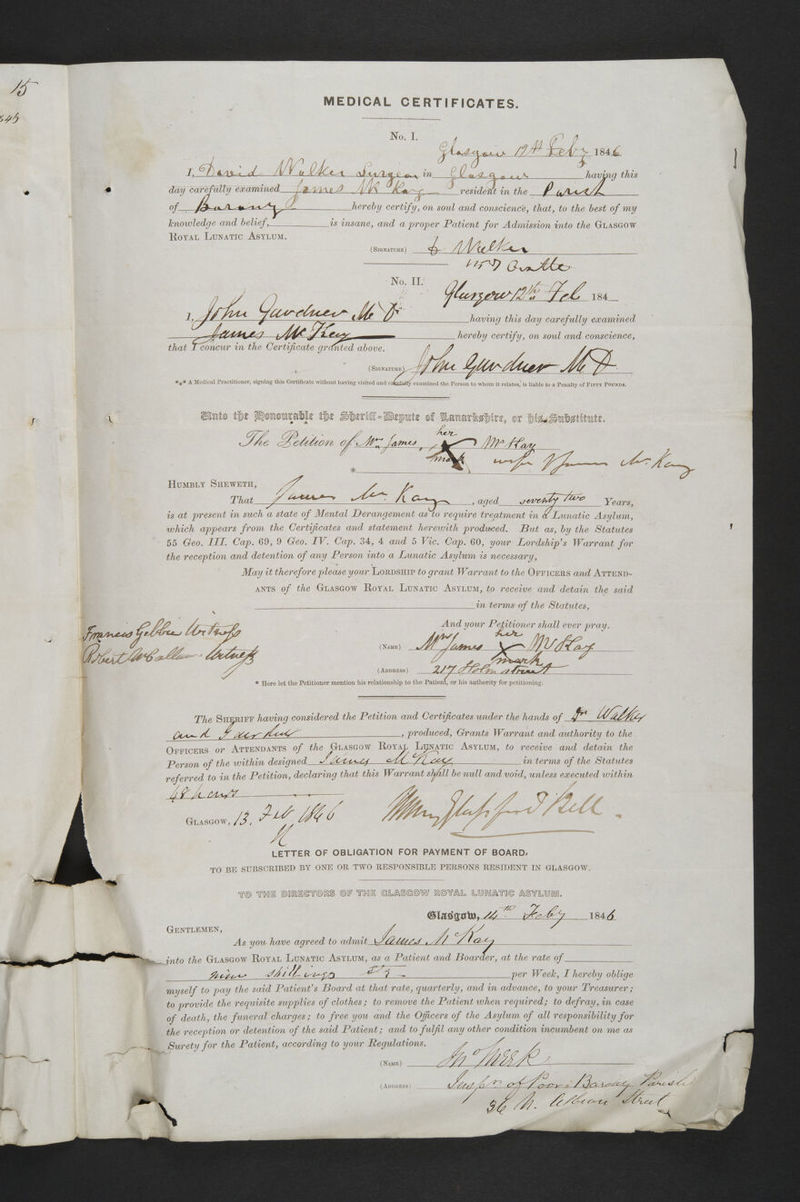 15
MEDICAL CERTIFICATES.
No. I.
Glasgow 12th Feby 1846
I, David Walker Surgeon in Glasgow having this
day carefully examined James McKay resident in the Parish
of Barony hereby certify, on soul and conscience, that, to the best of my
knowledge and belief, is insane, and a proper Patient for Admission into the GLASGOW
ROYAL LUNATIC ASYLUM.
(SIGNATURE) D Walker
No. II.
Glasgow 12th Feb 184
I, John Gardner MD having this day carefully examined
James McKay hereby certify, on soul and conscience,
that I concur in the Certificate granted above.
(SIGNATURE) John Gardner MD
*** A Medical Practitioner, signing this Certificate without having visited and carefully examined the Person to whom it relates, is liable to a Penalty of FIFTY POUNDS.
Unto the Honourable the Sheriff-Depute of Lanarkshire, or his Substitute.
her
The Petition of Mrs James X McKay
mark wife of James McKay
*
HUMBLY SHEWETH,
That James McKay, aged seventy two Years,
is at present in such a state of Mental Derangement as to require treatment in a Lunatic Asylum,
which appears from the Certificates and statement herewith produced. But as, by the Statutes
55 Geo. III. Cap. 69, 9 Geo. IV. Cap. 34, 4 and 5 Vic. Cap. 60, your Lordship's Warrant for
the reception and detention of any Person into a Lunatic Asylum is necessary,
May it therefore please your LORDSHIP to grant Warrant to the OFFICERS and ATTEND-
ANTS of the GLASGOW ROYAL LUNATIC ASYLUM, to receive and detain the said
in terms of the Statutes,
And your Petitioner shall ever pray.
Francis Gebbie Witness
Robert McCallum Witness
her
(NAME) Mrs James X McKay
mark
(ADDRESS) 217 Holm Street
* Here let the Petitioner mention his relationship to the Patient, or his authority for petitioning.
The SHERIFF having considered the Petition and Certificates under the hands of Dr Walker
and Gardner, produced, Grants Warrant and authority to the
OFFICERS or ATTENDANTS of the GLASGOW ROYAL LUNATIC ASYLUM, to receive and detain the
Person of the within designed James McKay in terms of the Statutes
referred to in the Petition, declaring that this Warrant shall be null and void, unless executed within
48 hours
GLASGOW, 13. Feb 1846 Henry Glassford Bell
LETTER OF OBLIGATION FOR PAYMENT OF BOARD,
TO BE SUBSCRIBED BY ONE OR TWO RESPONSIBLE PERSONS RESIDENT IN GLASGOW.
TO THE DIRECTORS OF THE GLASGOW ROYAL LUNATIC ASYLUM.
Glasgow, 14th Feby 1846
GENTLEMEN,
As you have agreed to admit James McKay
into the GLASGOW ROYAL LUNATIC ASYLUM, as a Patient and Boarder, at the rate of
nine shillings per Week, I hereby oblige
myself to pay the said Patient's Board at that rate, quarterly, and in advance, to your Treasurer;
to provide the requisite supplies of clothes; to remove the Patient when required; to defray, in case
of death, the funeral charges; to free you and the Officers of the Asylum of all responsibility for
the reception or detention of the said Patient; and to fulfil any other condition incumbent on me as
Surety for the Patient, according to your Regulations.
(NAME) Meek
(ADDRESS) Inspr of Poor Barony Parish
36 N. Albion Street